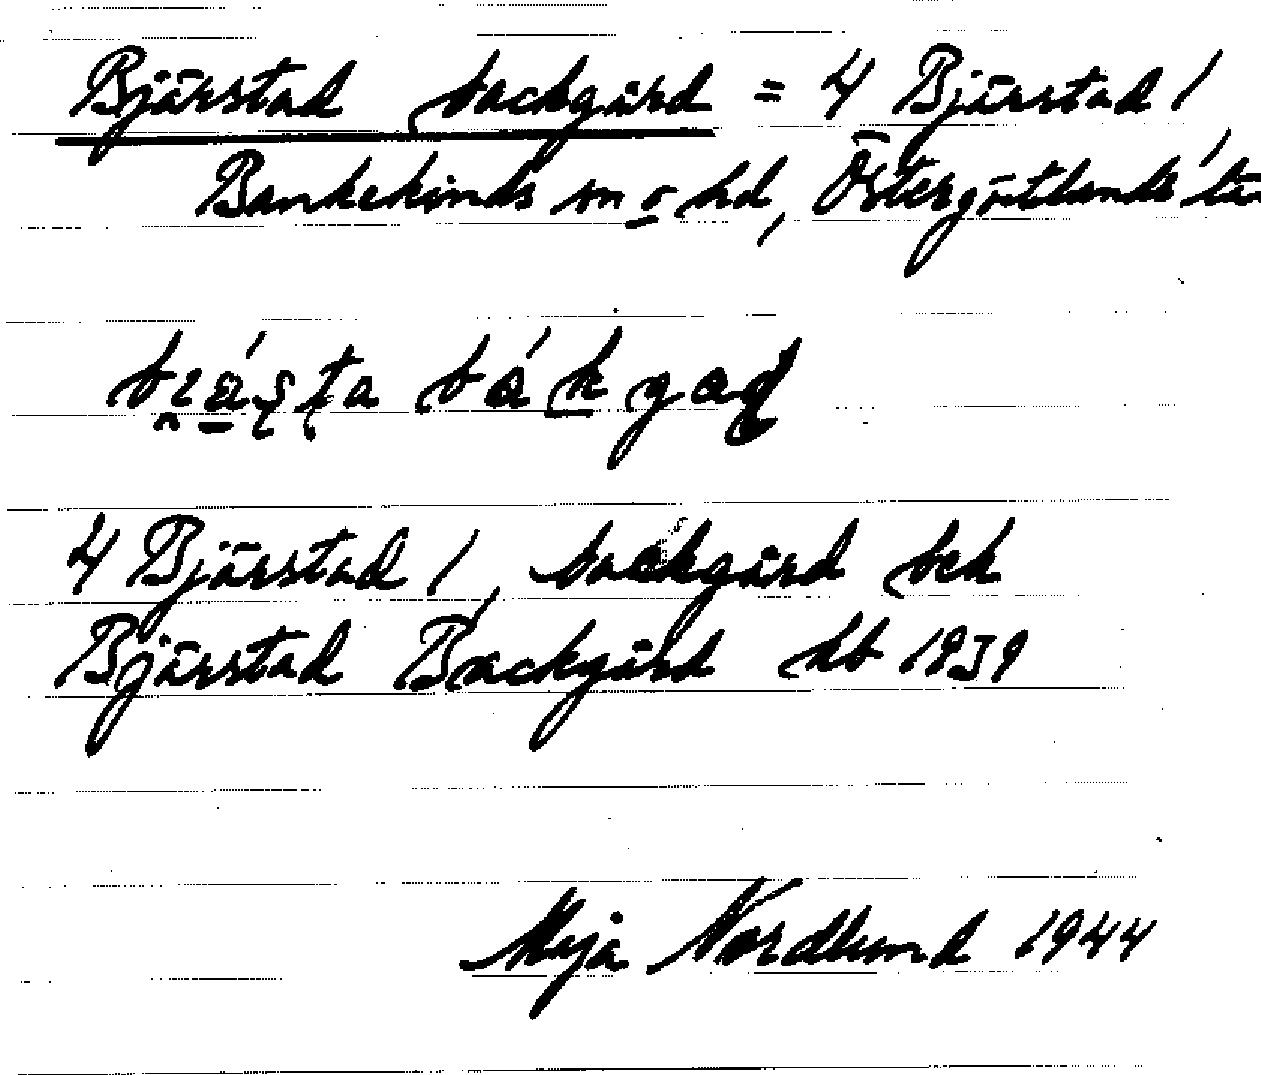 Bjärstad backgård = 4 Bjärstad /
Bankekinds sn o hd, Östergötlands län
4 Bjärstad /, backgård bek
Bjärstad Backgård hb 1939
Maja Nordlund 1944